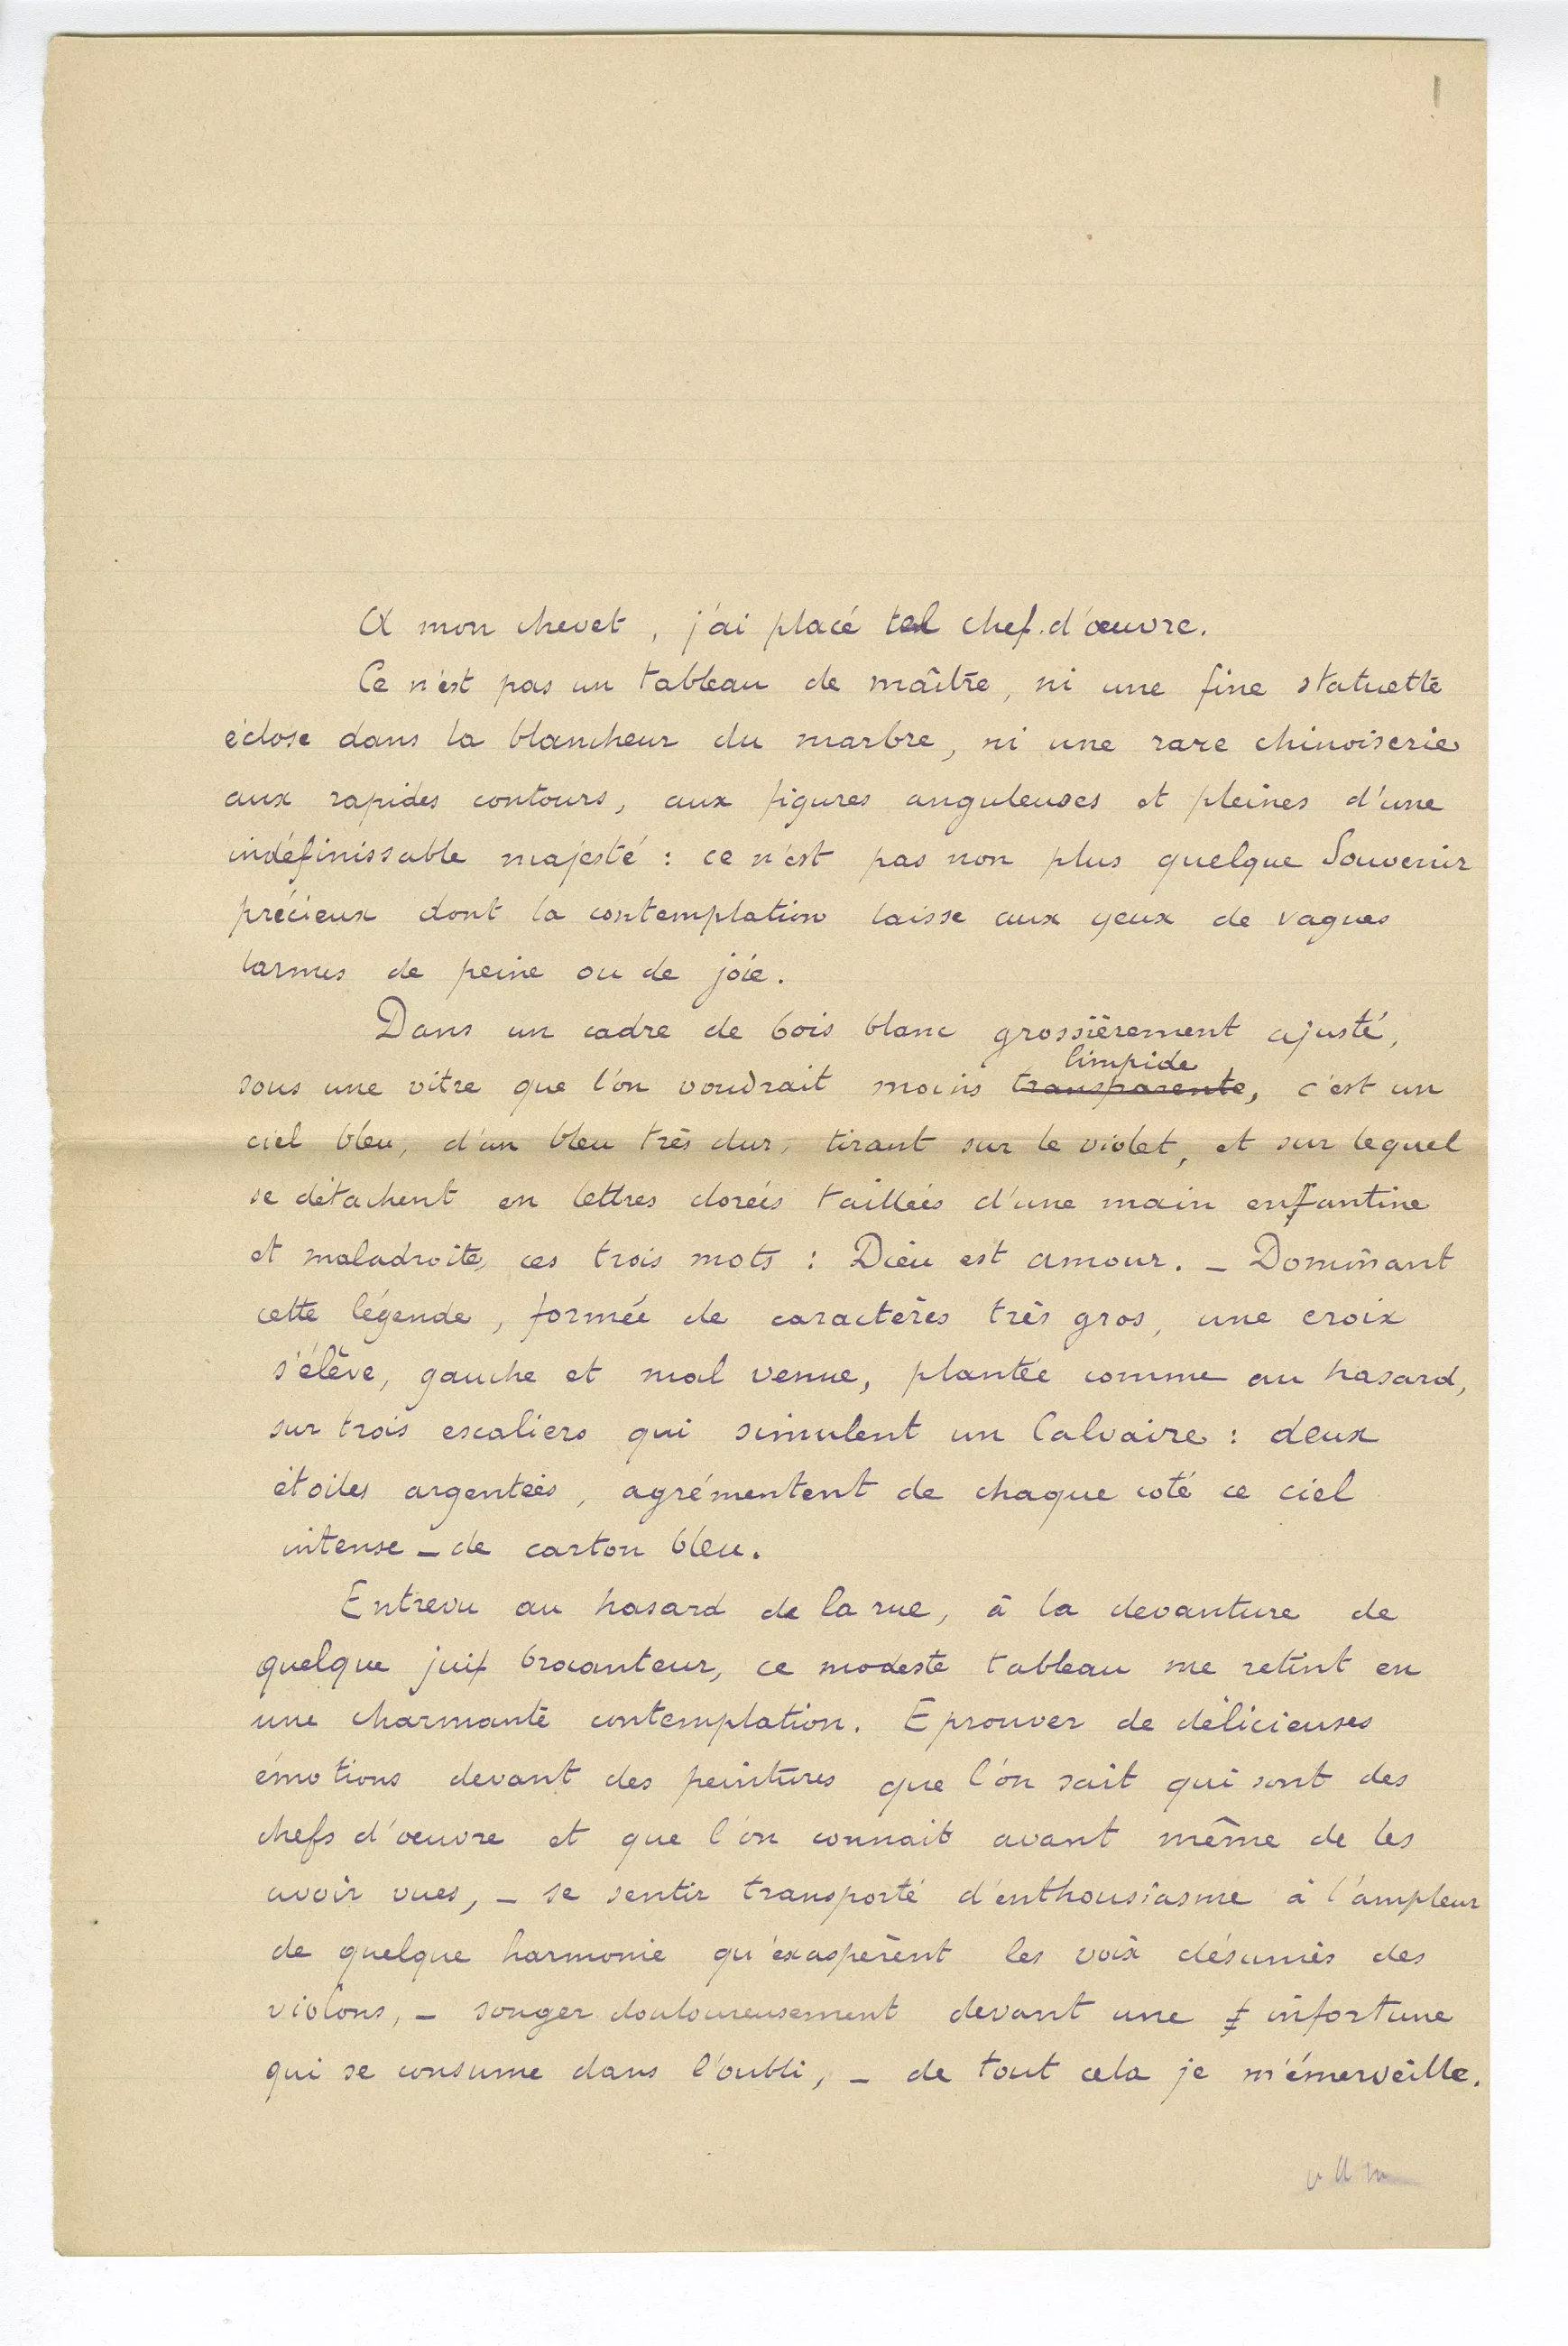 A mon chevet, j'ai placé tel chef-d'œuvre.
Ce n'est pas un tableau de maître, ni une fine statuette
éclose dans la blancheur du marbre, ni une rare chinoiserie
aux rapides contours, aux figures anguleuses et pleines d'une
indéfinissable majesté : ce n'est pas non plus quelque Souvenir
précieux dont la contemplation laisse aux yeux de vagues
larmes de peine ou de joie.
Dans un cadre de bois blanc grossièrement ajusté,
limpide
sous une vitre que l'on voudrait moins transparente, c'est un
ciel bleu, d'un bleu très dur, tirant sur le violet, et sur lequel
se détachent en lettres dorées taillées d'une main enfantine
et maladroite, ces trois mots : Dieu est amour. _ Dominant
cette légende, formée de caractères très gros, une croix
s'élève, gauche et mal venue, plantée comme au hasard,
sur trois escaliers qui simulent un Calvaire : deux
étoiles argentées, agrémentent de chaque coté ce ciel
intense _ de carton bleu.
Entrevu au hasard de la rue, à la devanture de
quelque juif brocanteur, ce modeste tableau me retint en
une charmante contemplation. Eprouver de délicieuses
émotions devant des peintures que l'on sait qui sont des
chefs d'œuvre et que l'on connait avant même de les
avoir vues, _ se sentir transporté d'enthousiasme à l'ampleur
de quelque harmonie qu'exaspèrent les voix désunies des
violons, _ songer douloureusement devant une infortune
qui se consume dans l'oubli, _ de tout cela je m'émerveille.